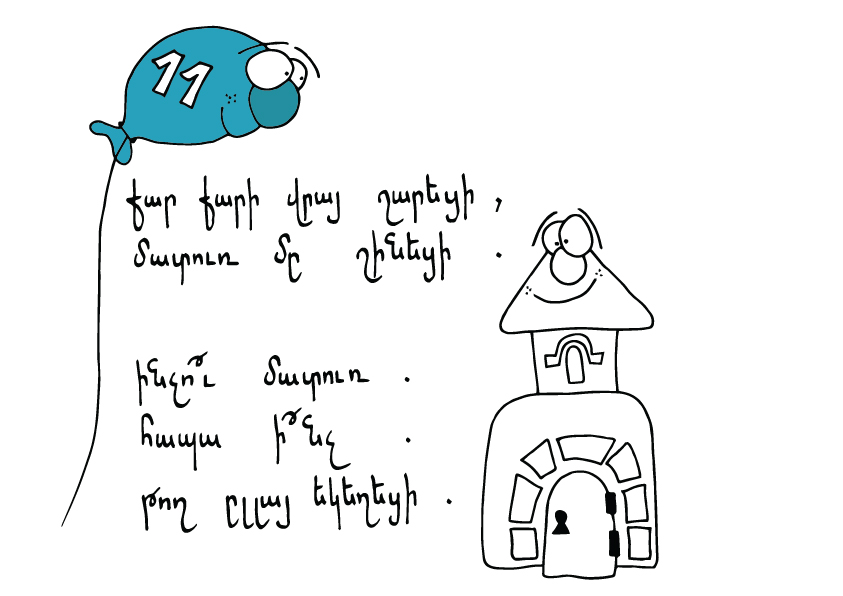 11
քար քարի վրայ շարեցի ,
մատուռ մը շինեցի .
ինչո՞ւ մատուռ .
հապա ի՞նչ .
թող ըլլայ եկեղեցի .